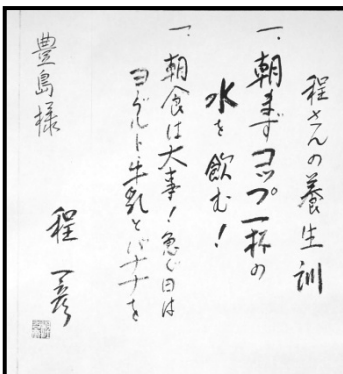 程さんの養生訓
一、朝まずコップ一杯の
水を飲む！
一、朝食は大事！急ぐ日は
ヨーグルト牛乳とバナナを
豊島様
程 一彦